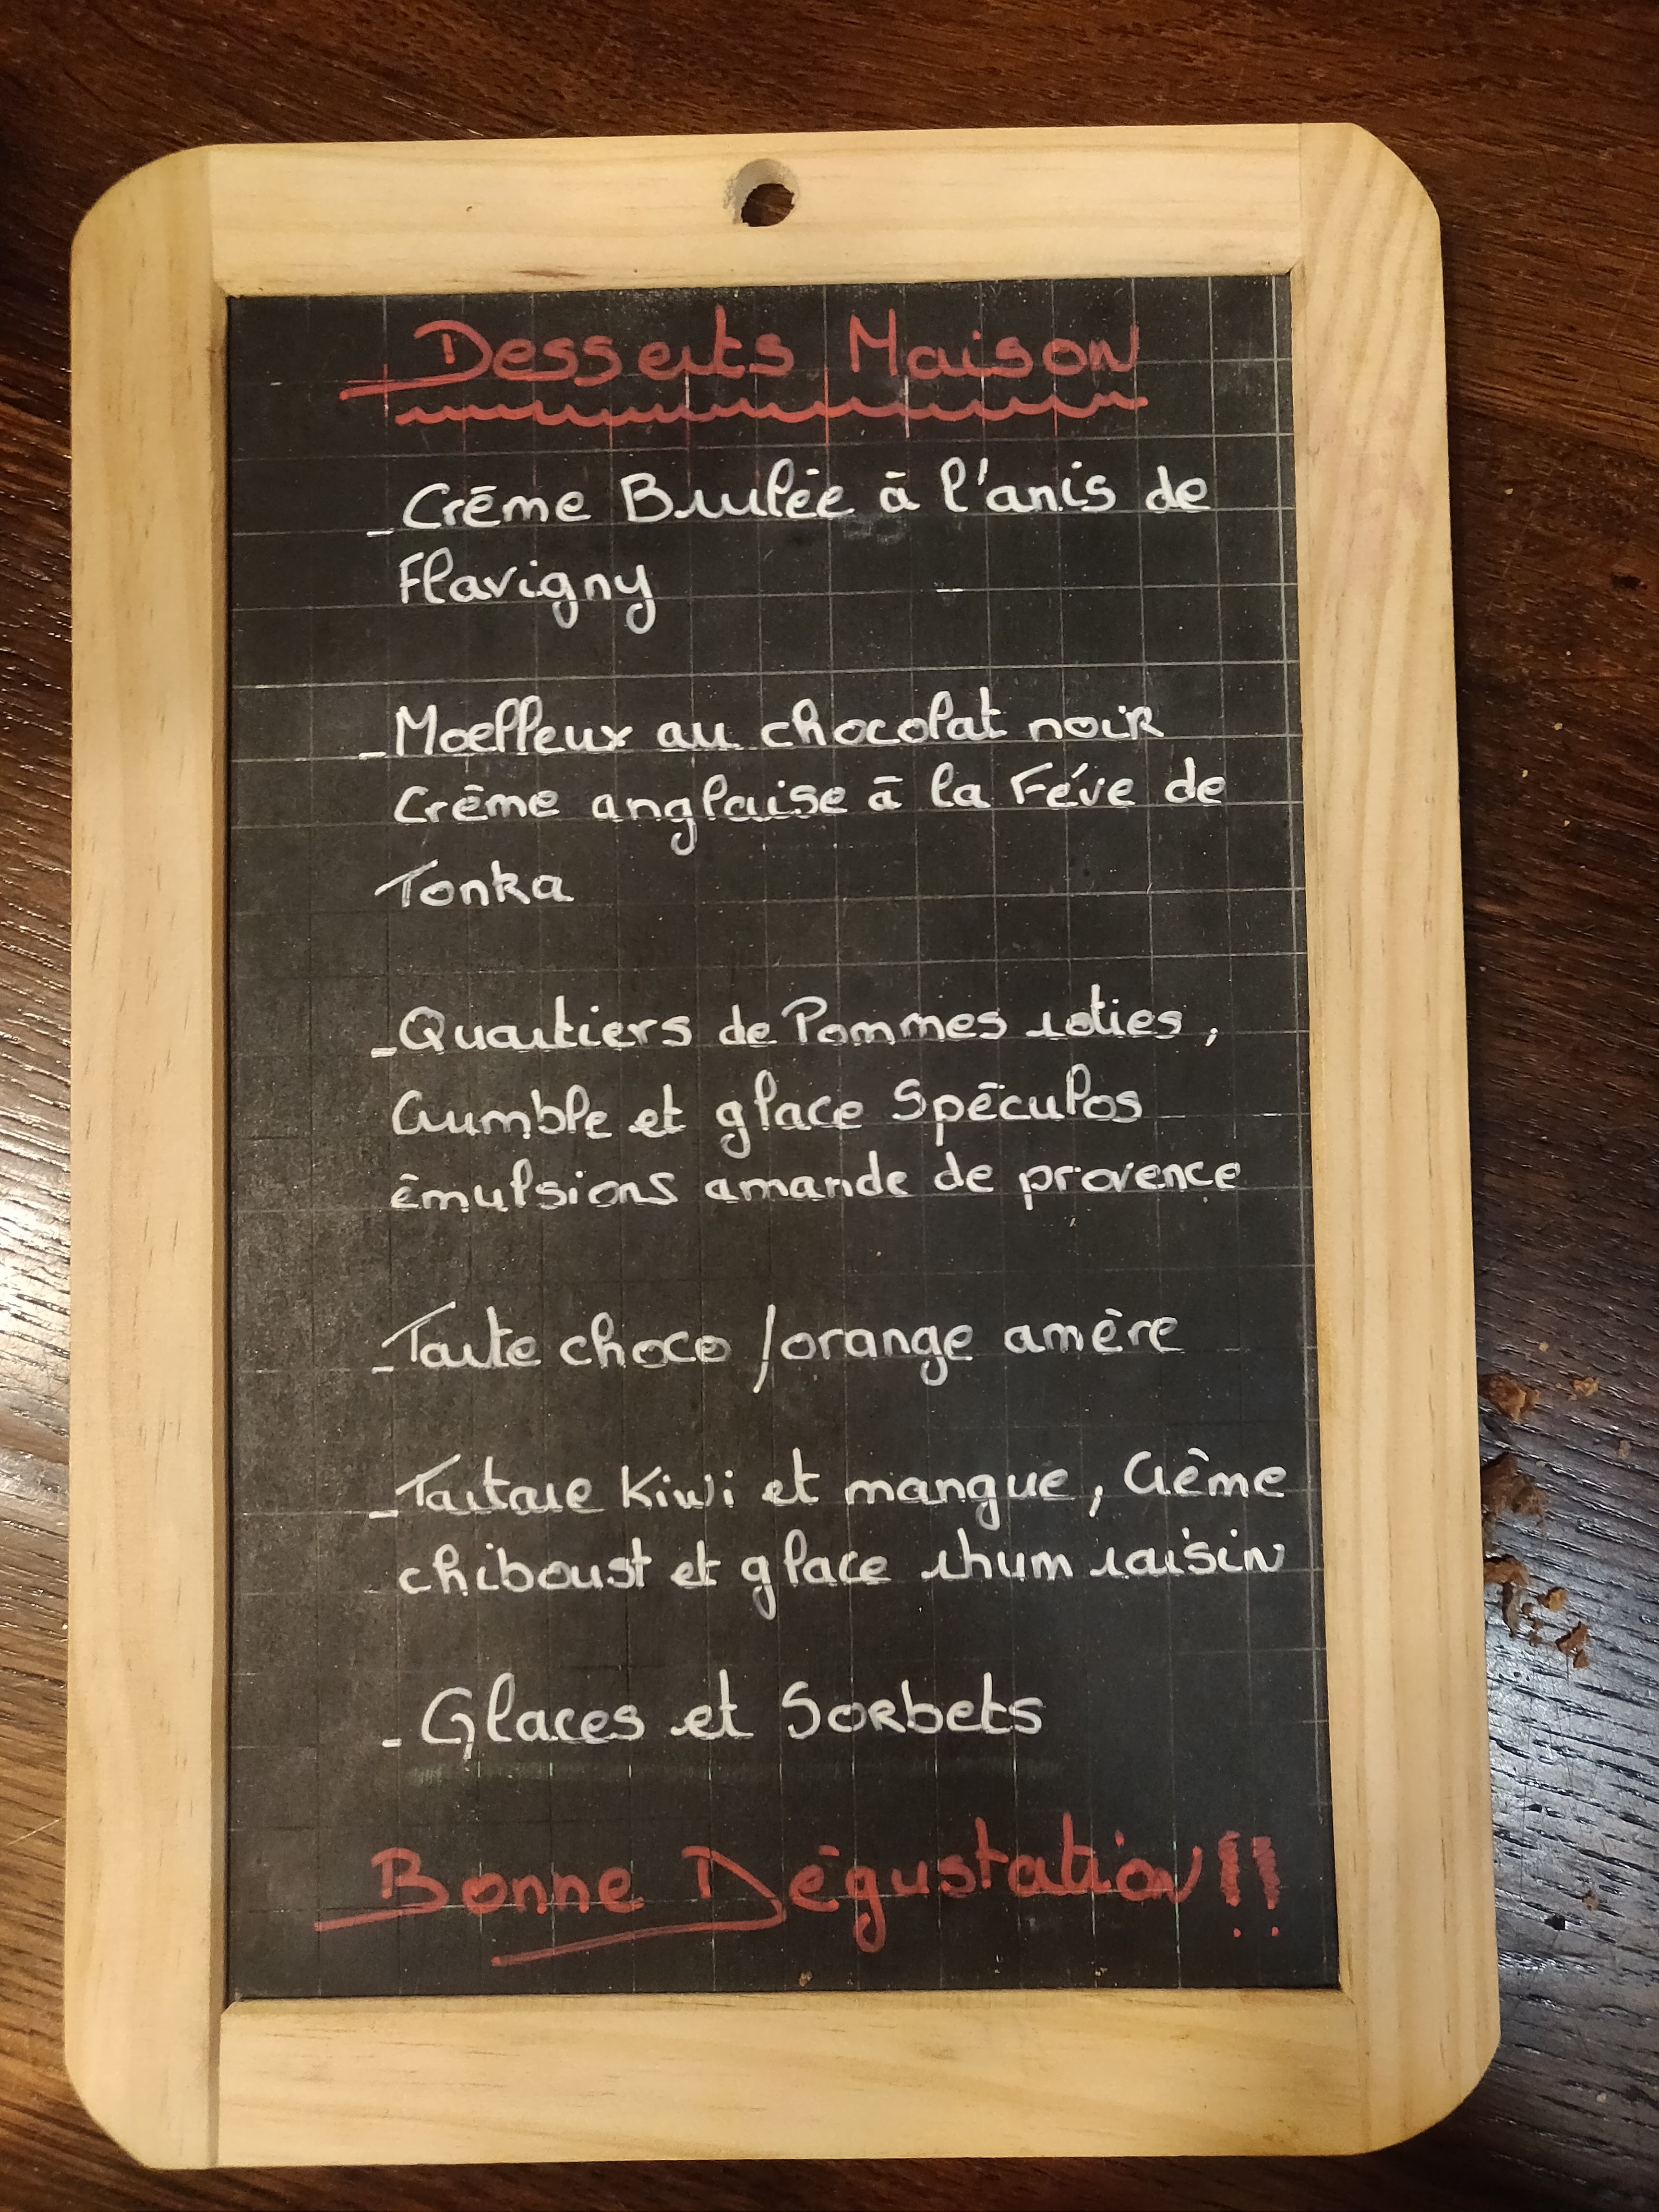 Desserts Maison
_Crème Brulée à l'anis de
Flavigny
_Moelleux au chocolat noir
Crème anglaise à la Féve de
Tonka
_Quartiers de Pommes roties,
Crumble et glace Spéculos
émulsions amande de provence
_Tarte choco /orange amère
_Tartare Kiwi et mangue, Crème
chiboust et glace rhum raisin
_Glaces et Sorbets
Bonne Dégustation!!